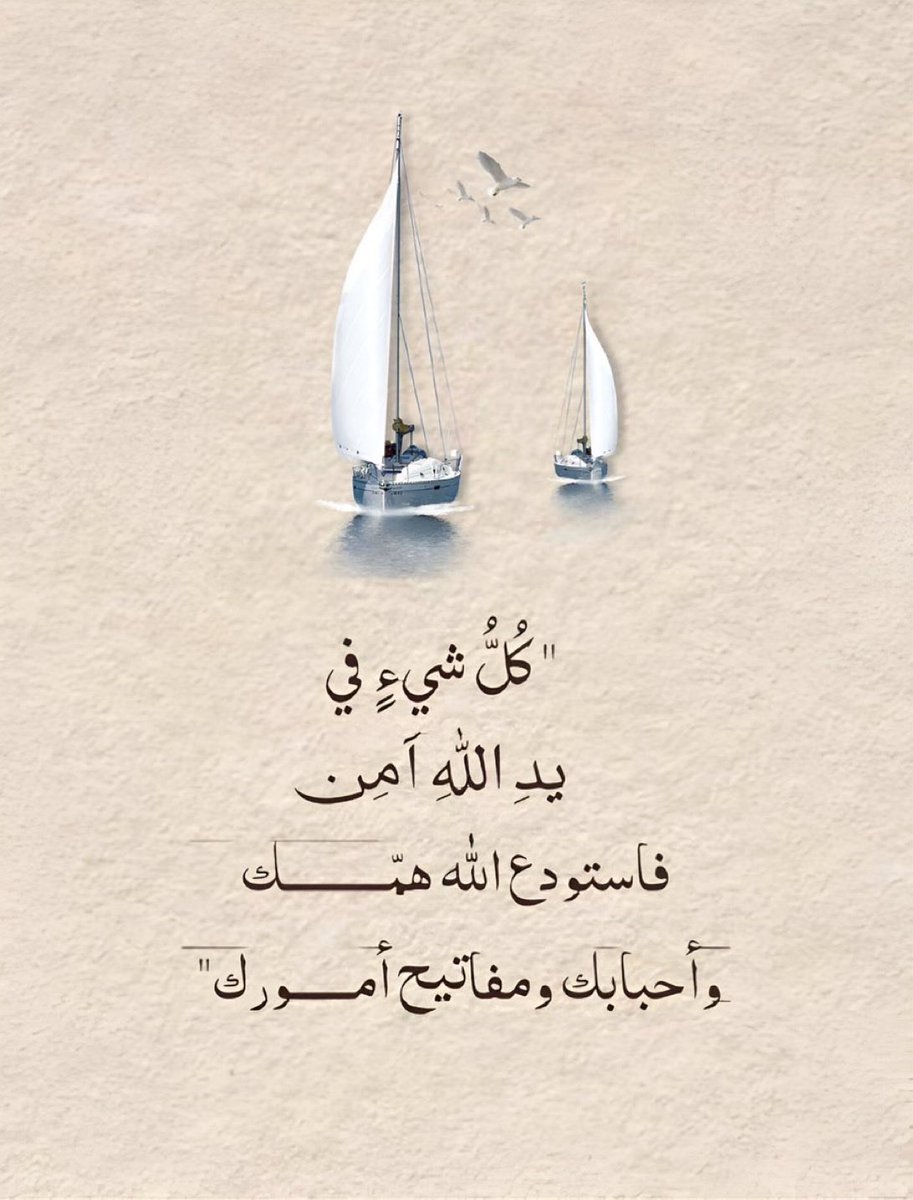 "كُلُّ شيءٍ في
يدِ اللهِ آمِن
فاستودع الله همّـــــك
وأحبابك ومفاتيح أمـــورك"